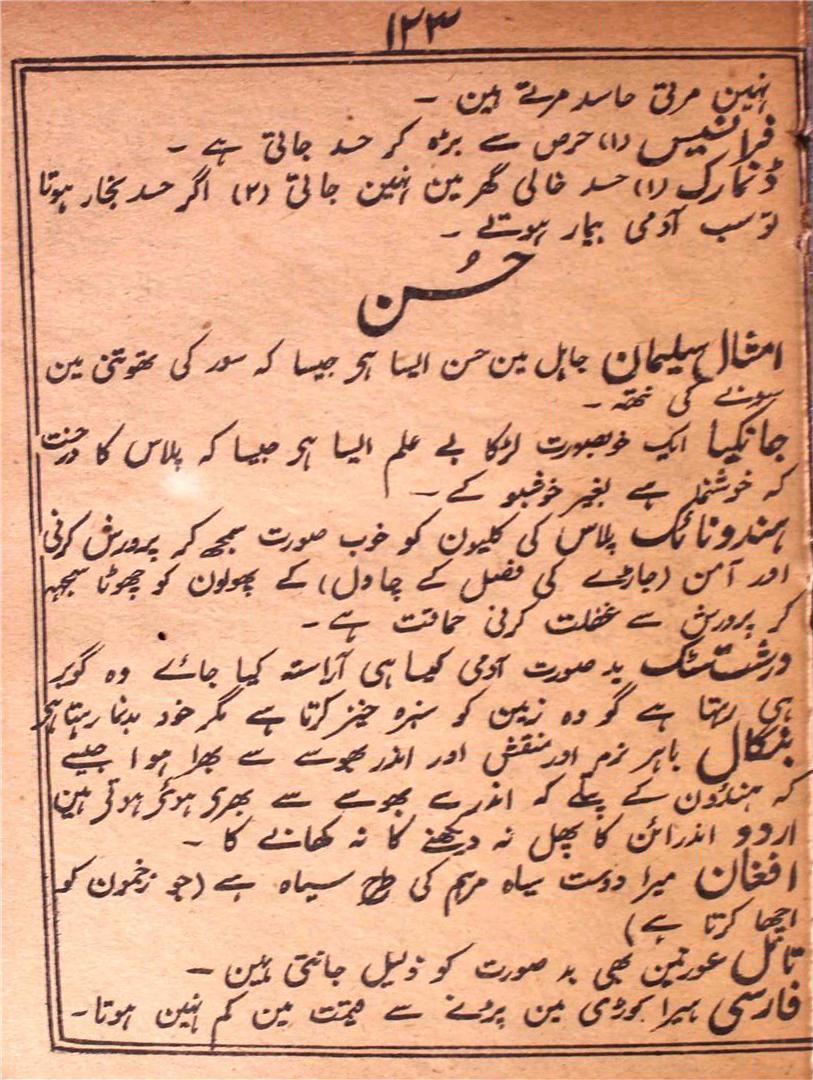 ۱۲۳
نہین مرتی حاسد مرتے ہین ۔
فرانسیس (۱) حرص سے بڑہ کر حسد جاتی ہے ۔
ڈنمارک (۱) حسد خالی گھر مین نہین جاتی (۲) اگر حسد بخار ہوتا
تو سب آدمی بیمار ہوتے ۔
حُسن
امثال سیلیمان جاہل مین حسن ایسا ہی جیسا کہ سور کی تھوتنی مین
سونے کی نتھ ۔
چانکیا ایک خوبصورت لڑکا بے علم ایسا ہی جیسا کہ پلاس کا درخت
کہ خوشنما ہے بغیر خوشبو کے ۔
ہندوناٹک پلاس کی کلیون کو خوب صورت سمجھ کر پرورش کرنی
اور آمن (جاڑے کی فصل کے چاول) کے پھولون کو چھوٹا سمجہہ
کر پرورش سے غفلت کرنی حماقت ہے ۔
درشتنتک بد صورت آدمی کیسا ہی آراستہ کیا جائے وہ گوبر
ہی رہتا ہے گو وہ زمین کو سبزہ خیز کرتا ہے مگر خود بدنما رہتا ہی
بنگال باہر نرم اور منقش اور اندر بھوسے سے بھرا ہوا جیسے
کہ ہندؤون کے پتلے کہ اندر سے بھوسے سے بھری ہوئی ہوتی ہین
اردو اندرائن کا پھل نہ دیکھنے کا نہ کھانے کا ۔
افغان میرا دوست سیاہ مرہم کی طرح سیاہ ہے (جو زخمون کو
اچھا کرتا ہے)
تامل عورتین بھی بد صورت کو ذلیل جانتی ہین ۔
فارسی ہیرا کوڑی مین پڑنے سے قیمت مین کم نہین ہوتا ۔